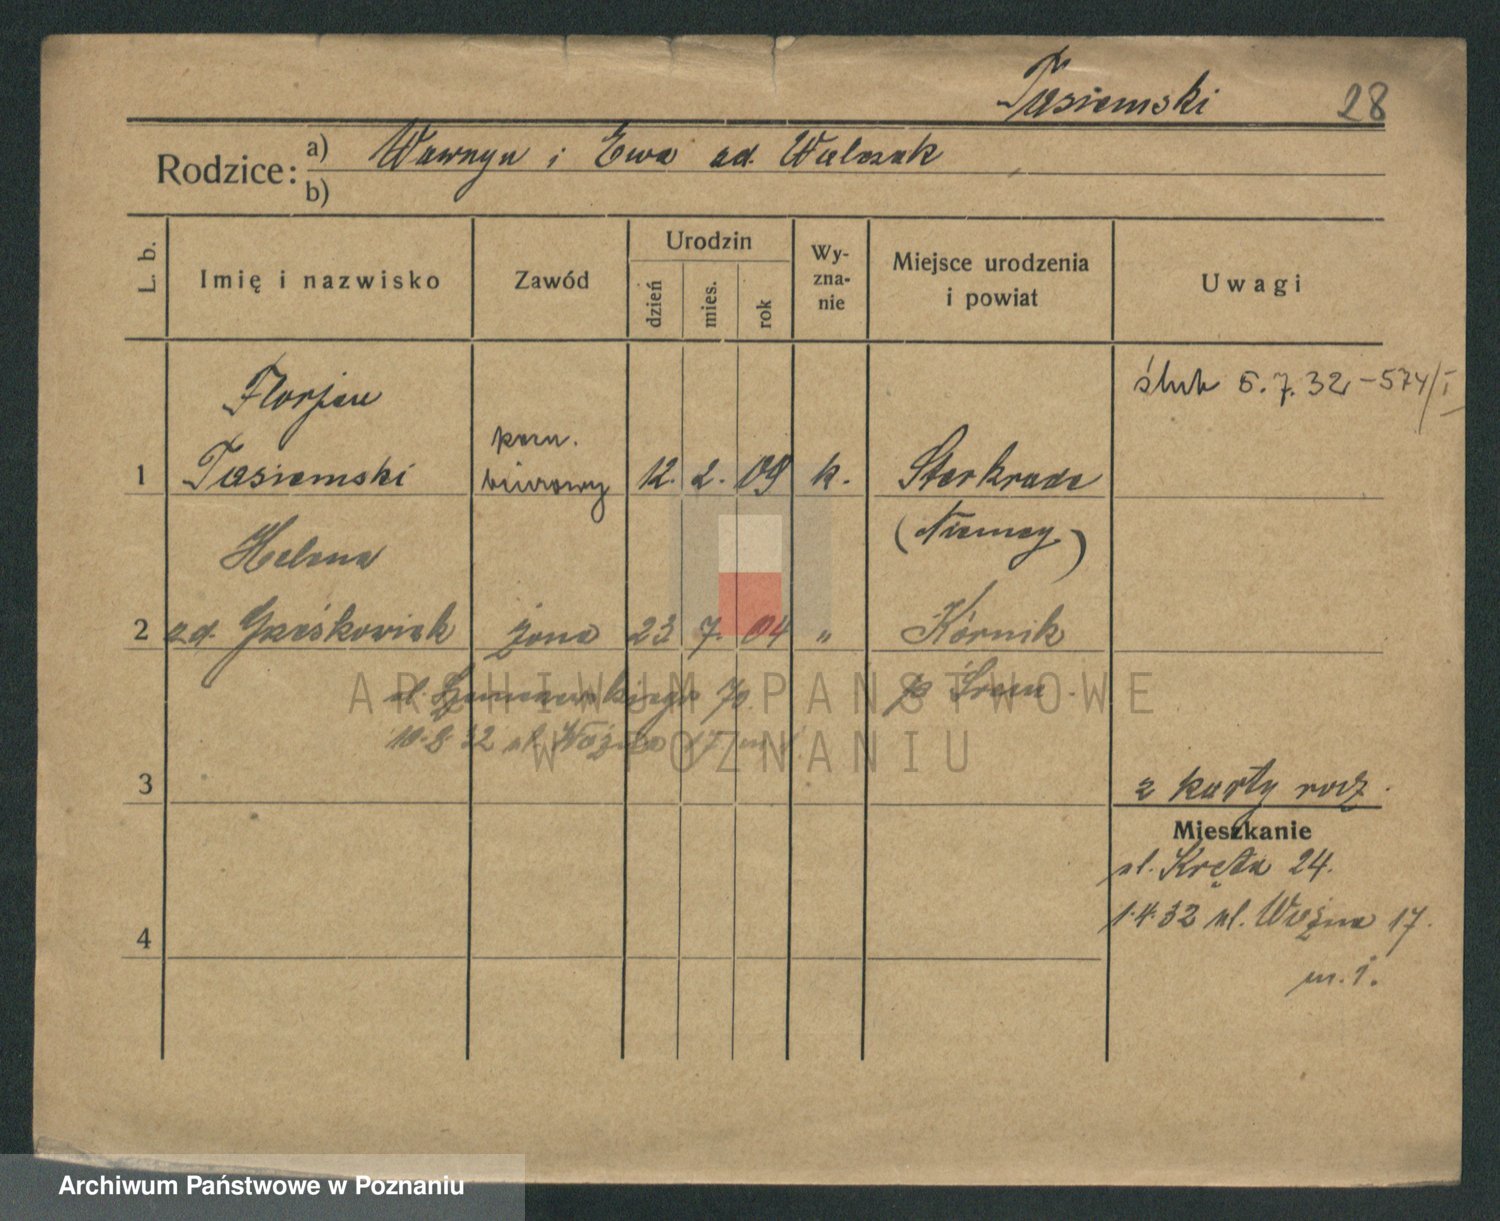 Tasiemski 28
Rodzice: a) Wawrzyn i Ewa zd. Walczak
b)
L. b. Imię i nazwisko Zawód Urodzin dzień mies. rok Wy-zna-nie Miejsce urodzenia i powiat Uwagi
ślub 5.7.32 - 574/I
Florjan
1 Tasiemski pom. biurowy 12. 2. 09 k. Sterkrade
(Niemcy)
Helena
2 zd. Grześkowiak żona 23 7. 04 " Kórnik
ul. 70. p Śrem.
10.8.32 ul. Woźna 17 m 1.
ARCHIWUM PAŃSTWOWE
W POZNANIU
3
z karty rodz.
Mieszkanie
ul. Kręta 24.
1.4.32 ul. Woźna 17.
m. 1.
4
Archiwum Państwowe w Poznaniu